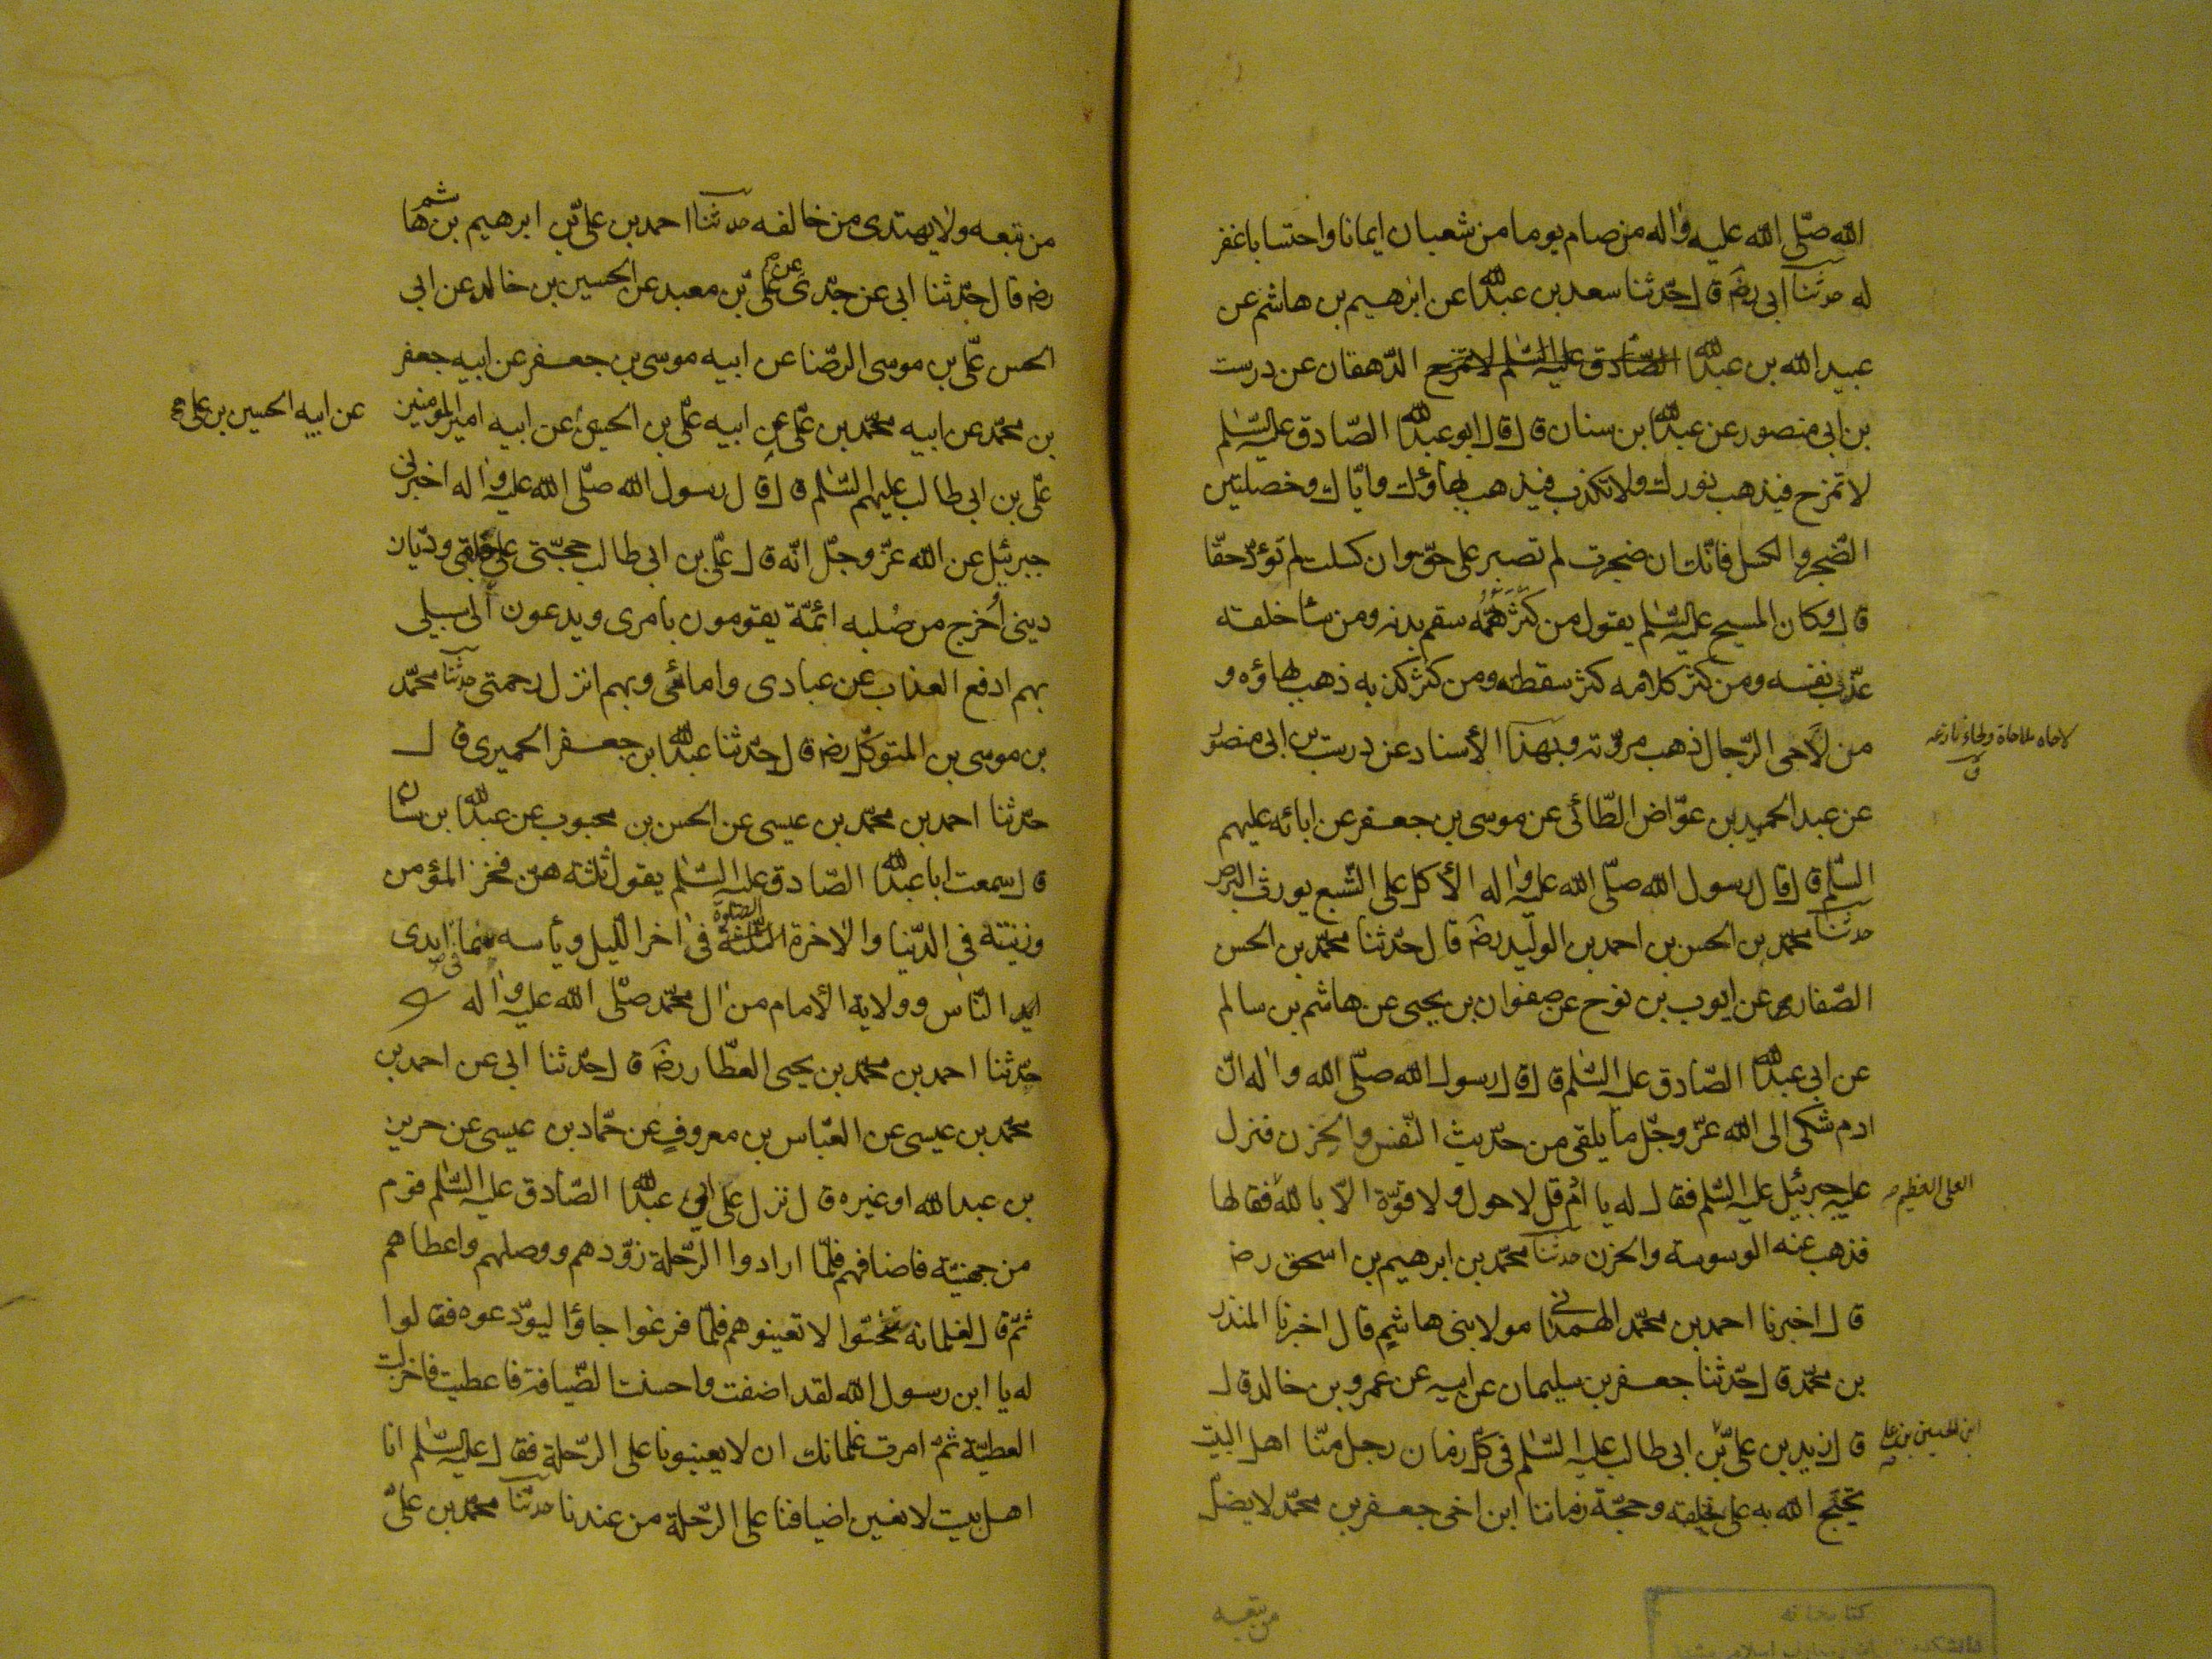 الله صلّى الله عليه واله من صام يوما من شعبان ايمانا واحتسابا غفر
له حدثنا ابى رضه قال حدّثنا سعد بن عبدالله عن ابرهيم بن هاشم عن
عبيد الله بن عبدالله الصّادق عليه السّلم لا تمزح الدّهقان عن درست
بن ابى منصور عن عبدالله بن سنان قال قال ابو عبدالله الصّادق عليه السّلم
لا تمزح فيذهب نورك ولا تكذب فيذهب بهاؤك وايّاك وخصلتين
الضّجر والكسل فانّك ان ضجرت لم تصبر على حقّ وان كسلت لم تؤدّ حقّا
قال وكان المسيح عليه السّلم يقول من كثر همّه سقم بدنه ومن ساء خلقه
عذّب نفسه ومن كثر كلامه كثر سقطه ومن كثر كذبه ذهب بهاؤه و
من لاحى الرّجال ذهب مروّته وبهذا الأسناد عن درست بن ابى منصور
لاحاه ملاحاة ولحاء نازعه
ق
عن عبد الحميد بن عوّاض الطّائى عن موسى بن جعفر عن ابائه عليهم
السّلم قال قال رسول الله صلّى الله عليه واله الأكل على الشّبع يورث البرص
حدثنا محمّد بن الحسن بن احمد بن الوليد رضه قال حدّثنا محمّد بن الحسن
الصّفار عن ايوب بن نوح عن صفوان بن يحيى عن هاشم بن سالم
عن ابى عبدالله الصّادق عليه السّلم قال قال رسول الله صلّى الله واله انّ
ادم شكى الى الله عزّ وجلّ ما يلقى من حديث النّفس والحزن فنزل
عليه جبرئيل عليه السّلم فقال له يا ادم قل لا حول ولا قوّة الاّ بالله فقالها
العلى العظيم
فذهب عنه الوسوسة والحزن حدثنا محمّد بن ابرهيم بن اسحق رضه
قال اخبرنا احمد بن محمّد الهمدانى مولا بنى هاشم قال اخبرنا المنذر
بن محمّد قال حدّثنا جعفر بن سليمان عن ابيه عن عمرو بن خالد قال
قال زيد بن علىّ بن ابى طالب عليه السّلم فى كلّ زمان رجل منّا اهل البيت
ابن الحسين بن على
يحتج الله به على خلقه وحجّة زماننا ابن اخى جعفر بن محمّد لا يضلّ
من تبعه
كتابخانه
من تبعه ولا يهتدى من خالفه حدثنا احمد بن علىّ بن ابرهيم بن هاشم
رضه قال حدّثنا ابى عن جدّى عن علىّ بن معبد عن الحسين بن خالد عن ابى
الحسن علىّ بن موسى الرّضا عن ابيه موسى بن جعفر عن ابيه جعفر
بن محمّد عن ابيه محمّد بن علىّ عن ابيه علىّ بن الحسين عن ابيه امير المومنين
عن ابيه الحسين بن على
علىّ بن ابى طالب عليهم السّلم قال قال رسول الله صلّى الله عليه واله اخبرنى
جبرئيل عن الله عزّ وجلّ انّه قال علىّ بن ابى طالب حجّتى على خلقى وديّان
دينى اُخرج من صُلبه ائمّة يقومون بامرى ويدعون الى سبيلى
بهم ادفع العذاب عن عبادى وامائى وبهم انزل رحمتى حدثنا محمّد
بن موسى بن المتوكّل رضه قال حدّثنا عبدالله بن جعفر الحميرى قال
حدّثنا احمد بن محمّد بن عيسى عن الحسن بن محبوب عن عبدالله بن سنان
قال سمعت ابا عبدالله الصّادق عليه السّلم يقول ثلثة هنّ فخر المؤمن
وزينته فى الدّنيا والاخرة الصّلوة فى اخر اللّيل ويأسه ممّا فى ايدى
النّاس وولاية الأمام من ال محمّد صلّى الله عليه واله
حدّثنا احمد بن محمّد بن يحيى العطّار رضه قال حدّثنا ابى عن احمد بن
محمّد بن عيسى عن العبّاس بن معروف عن حمّاد بن عيسى عن حريز
بن عبدالله او غيره قال نزل على ابى عبدالله الصّادق عليه السّلم قوم
من جهينة فاضافهم فلمّا ارادوا الرّحلة زوّدهم ووصلهم واعطاهم
ثمّ قال لغلمانه تنحّوا لا تعينوهم فلمّا فرغوا جاؤا ليودّعوه فقالوا
له يا ابن رسول الله لقد اضفت واحسنت الضّيافة فاعطيت فاجزلت
العطيّة ثمّ امرت غلمانك ان لا يعينونا على الرّحلة فقال عليه السّلم انا
اهل بيت لا نعين اضيافنا على الرّحلة من عندنا حدثنا محمّد بن علىّ